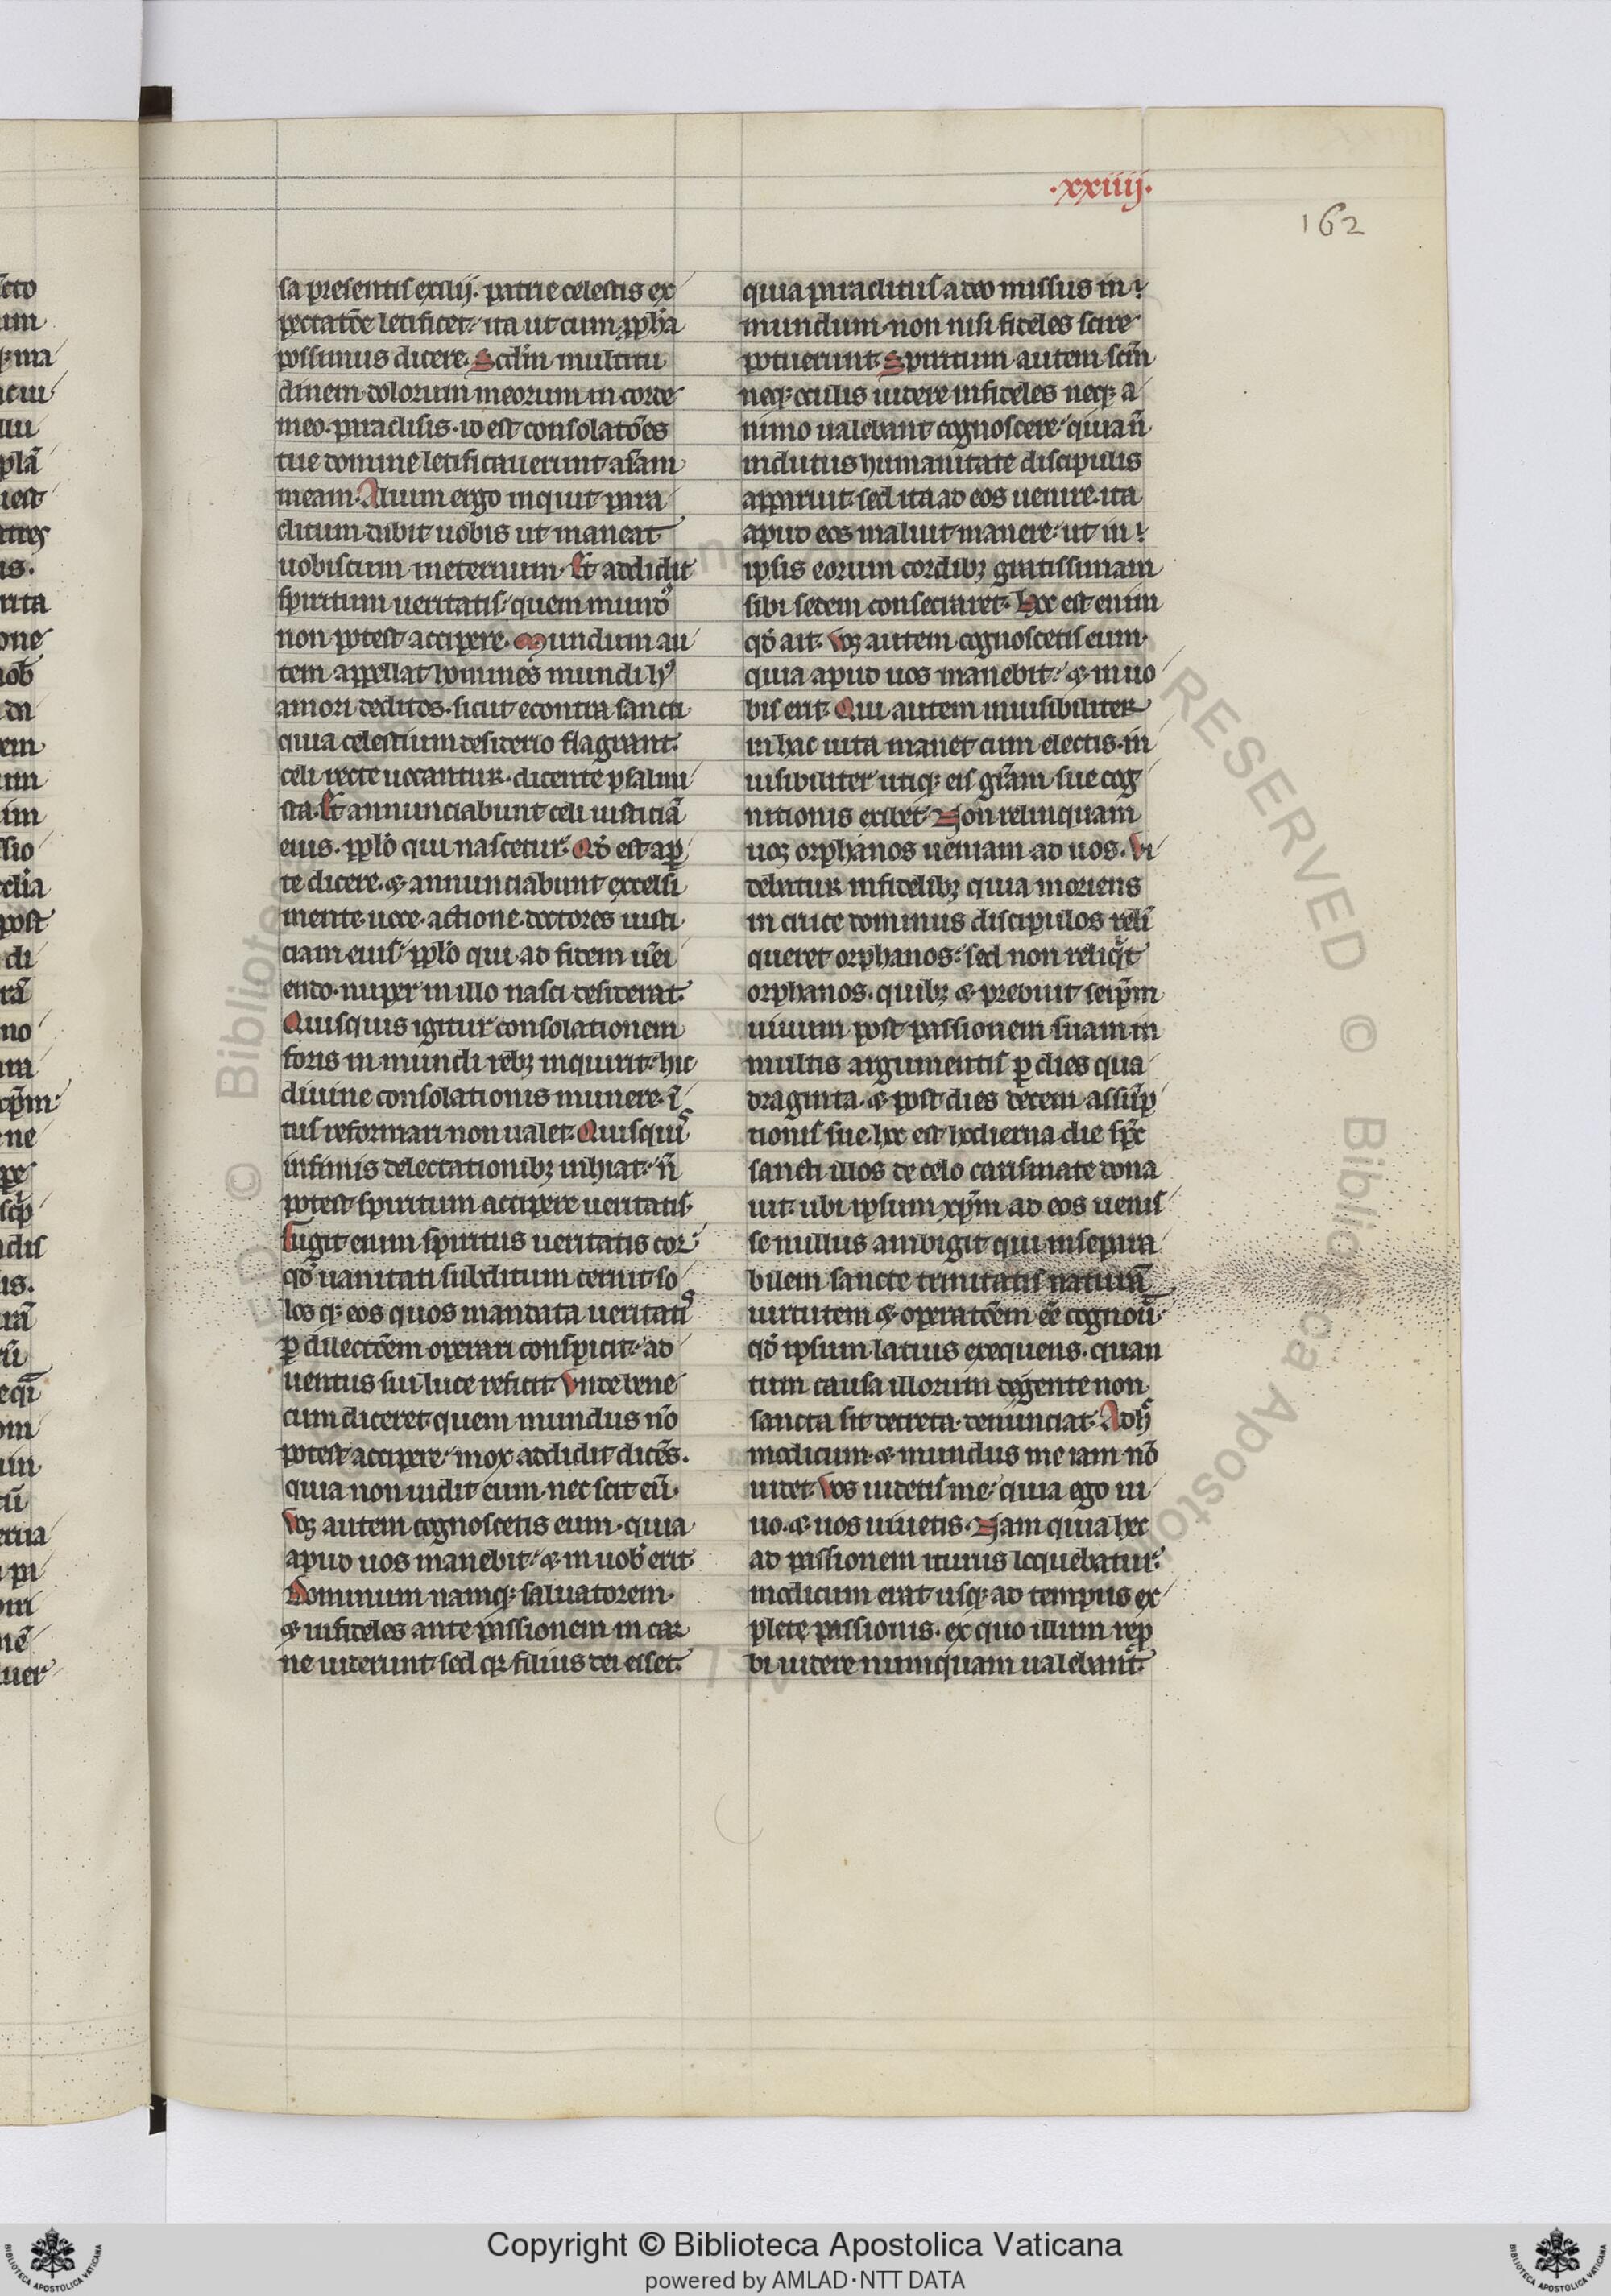 .xxiiij.
162
sa presentis exilij. patrie celestis ex
pectatōe letificet. ita ut cum ꝓpha
possimus dicere. Scd'm multitu
dinem dolorum meorum in corde
meo. paraclisis. id est consolatōes
tue domine letificauerunt aīam
meam. Alium ergo inquit para
clitum dabit uobis ut maneat
uobiscum in eternum. Et addidit
spiritum ueritatis. quem mund᷒
non potest accipere. Mundum au
tem appellat homines mundi hui᷒
amori deditos. sicut econtra sancti
quia celestium desiderio flagrant.
celi recte uocantur. dicente psalmi
sta. Et annunciabunt celi iusticiā
eius. pplō qui nascetur. Qd̄ est aꝑ
te dicere. ⁊ annunciabunt excelsi
mente uoce. actione. doctores iusti
ciam eius. pplō qui ad fidem uēi
endo. nuper in illo nasci desiderat.
Quisquis igitur consolationem
foris in mundi rebꝫ inquirit. hic
diuine consolationis munere. ī
tus reformari non ualet. Quisquis
infimis delectationibꝫ inhiat. n̄
potest spiritum accipere ueritatis.
Fugit enim spiritus ueritatis cor.
qd̄ uanitati subditum cernit. so
los qꝫ eos quos mandata ueritatis
ꝑ dilectōem operari conspicit. ad
uentus sui luce reficit. Vnde bene
cum diceret quem mundus nō
potest accipere. mox addidit dicēs.
quia non uidit eum. nec scit eū.
Vos autem cognoscetis eum. quia
apud uos manebit. ⁊ in uob' erit.
Dominum namqꝫ saluatorem.
⁊ infideles ante passionem in car
ne uiderunt. sed qꝛ filius dei esset.
quia paraclitus a deo missus in
mundum. non nisi fideles scire
potuerunt. Spiritum autem scm̄
neqꝫ oculis uidere infideles neqꝫ a
nimo ualebant cognoscere. quia n̄
indutus humanitate discipulis
apparuit. sed ita ad eos uenire. ita
apud eos maluit manere. ut in
ipsis eorum cordibꝫ gratissimam
sibi sedem consecraret. Hoc est enim
qd̄ ait. Vos autem cognoscetis eum.
quia apud uos manebit. ⁊ in uo
bis erit. Qui autem inuisibiliter
in hac uita manet cum electis. in
uisibiliter utiqꝫ eis gr̄am sue cog
nitionis exibet. Non relinquam
uos orphanos ueniam ad uos. Vi
debatur infidelibꝫ quia moriens
in cruce dominus discipulos reli
queret orphanos. sed non reliqͥt
orphanos. quibꝫ ⁊ prebuit seip̄m
uiuum post passionem suam in
multis argumentis ꝑ dies qua
draginta. ⁊ post dies decem assūp
tionis sue. hoc est hodierna die sp̄c
sancti illos de celo carismate dona
uit. ubi ipsum xp̄m ad eos uenis
se nullus ambigit. qui insepara
bilem sancte trinitatis naturā
uirtutem ⁊ operatōem eē cognoū.
qd̄ ipsum latius exequens. quan
tum causa illorum degente non
sancta sit decreta. denunciat. Adhᶜ
modicum ⁊ mundus me iam nō
uidet. Vos uidetis me. quia ego ui
uo. ⁊ uos uiuetis. Nam quia hec
ad passionem iturus loquebatur.
modicum erat usqꝫ ad tempus ex
plete passionis. ex quo illum repro
bi uidere numquam ualebant.
Copyright © Biblioteca Apostolica Vaticana
powered by AMLAD·NTT DATA